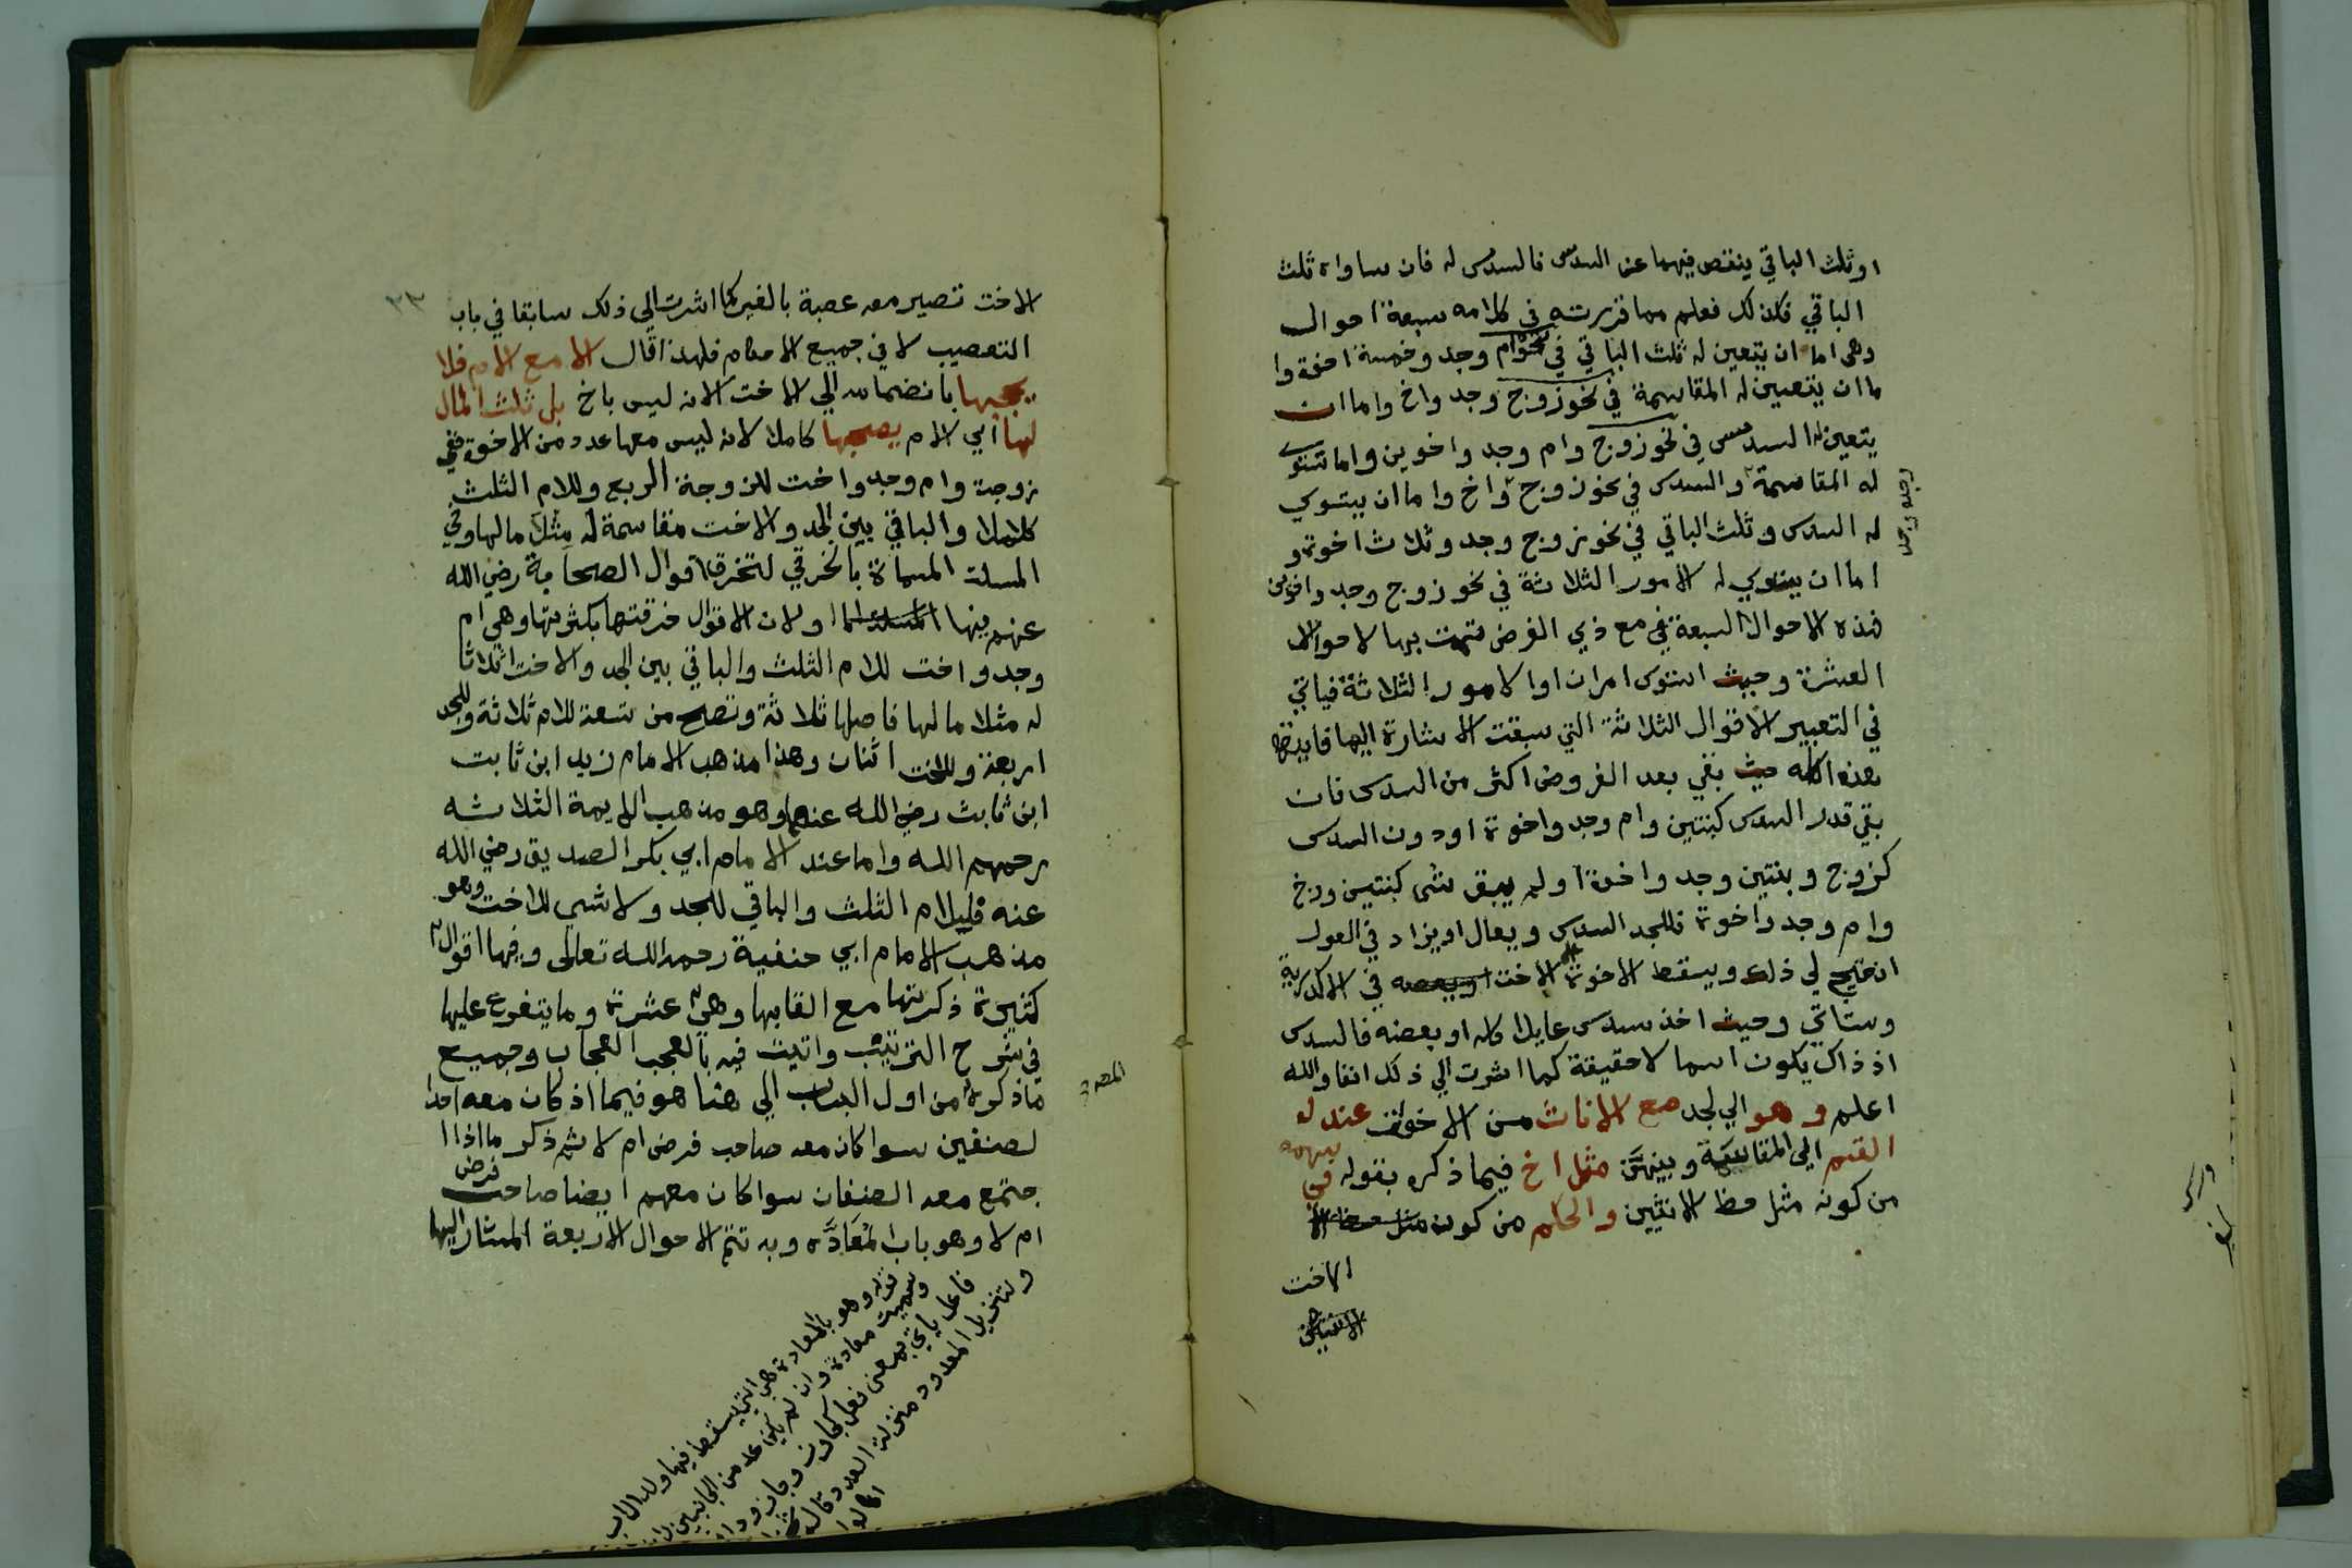 او ثلث الباقي ينقص فيهما عن السدس فالسدس له فان ساواه ثلث
الباقي فكذلك فعلم مما قررته في كلامه سبعة احوال
وهي اما ان يتعين له ثلث الباقي في نحو ام وجد وخمسة اخوة وا
ما ان يتعين له المقاسمة في نحو زوج وجد واخ واما ان
يتعين له السدس في نحو زوج وام وجد واخوين واما تستوي
له المقاسمة والسدس في نحو زوج واخ واما ان يستوي
له السدس وثلث الباقي في نحو زوج وجد وثلاث اخوة و
اما ان يستوي له الامور الثلاثة في نحو زوج وجد واخوين
فهذه الاحوال السبعة في مع ذي الفرض فتمت بها لاحوال
العشرة وحيث استوى امران او الامور الثلاثة فياتي
في التعبير الاقوال الثلاثة التي سبقت الاشارة اليها
هذا كله حيث بقي بعد الفروض اكثر من السدس فان
بقي قدر السدس كبنتين وام وجد واخوة او دون السدس
كزوج وبنتين وجد واخوة او لم يبق شى كبنتين وزوج
وام وجد واخوة فللجد السدس ويعال او يزاد في العول
ان احتيج لي ذلك ويسقط الاخوة الا الاخت في الاكدرية
وستاتي وحيث اخذ سدس عايلا كله او بعضه فالسدس
اذ ذاك يكون اسما لا حقيقة كما اشرت الي ذلك انفا والله
اعلم وهو الي لجد مع الاناث من الاخوة عند له
القسم الي المقاسمة وبينهن مثل اخ فيما ذكره بقوله في سهمه
من كونه مثل حظ الانثيين والحكم من كون مثل حظ الا
الاخت
الاخت تصير معه عصبة بالغير كما اشرت الي ذلك سابقا في باب
٢٣
التعصيب لا في جميع الاحكام فلهذا قال الا مع الام فلا
يحجبها بانضمامه الي الاخت لانه ليس باخ بل ثلث المال
لها اي الام يصحبها كاملا لانه ليس معها عدد من الاخوة ففي
زوجة وام وجد واخت للزوجة الربع وللام الثلث
كاملا والباقي بين الجد والاخت مقاسمة له مثلا مالها وفي
المسئلة المسماة بالخرقي لتخرق اقوال الصحابة رضي الله
عنهم فيها او لان الاقوال خرقتها بكثرتها وهي ام
وجد واخت للام الثلث والباقي بين الجد والاخت اثلاثا
له مثلا مالها فاصلها ثلاثة وتصح من تسعة للام ثلاثة وللجد
اربعة وللاخت اثنان وهذا مذهب الامام زيد ابن ثابت
ابن ثابت رضي الله عنهم وهو مذهب الايمة الثلاثه
رحمهم الله واما عند الامام ابي بكر الصديق رضي الله
عنه فللام الثلث والباقي للجد ولا شي للاخت وهو
مذهب الامام ابي حنفية رحمه الله تعالى وفيها اقوال
كثيرة ذكرتها مع القابها وهي عشرة وما يتفرع عليها
في شرح الترتيب واتيت فيه بالعجب العجاب وجميع
ماذكره من اول الباب الي هنا هو فيما اذ كان معه احدا
لصنفين سوا كان معه صاحب فرض ام لا ثم ذكر ما اذا ا
جتمع معه الصنفان سوا كان معهم ايضا صاحب فرض
ام لا وهو باب المعادة وبه تتم الاحوال الاربعة المشار اليها
قوله وهو بالمعادة هي التي يسقط فيها ولد الاب
وسميت معادة وان لم يكن عد من الجانبين
فاعل ياتي بمعنى فعل
ولتنزيل المعدود منزلة العدد